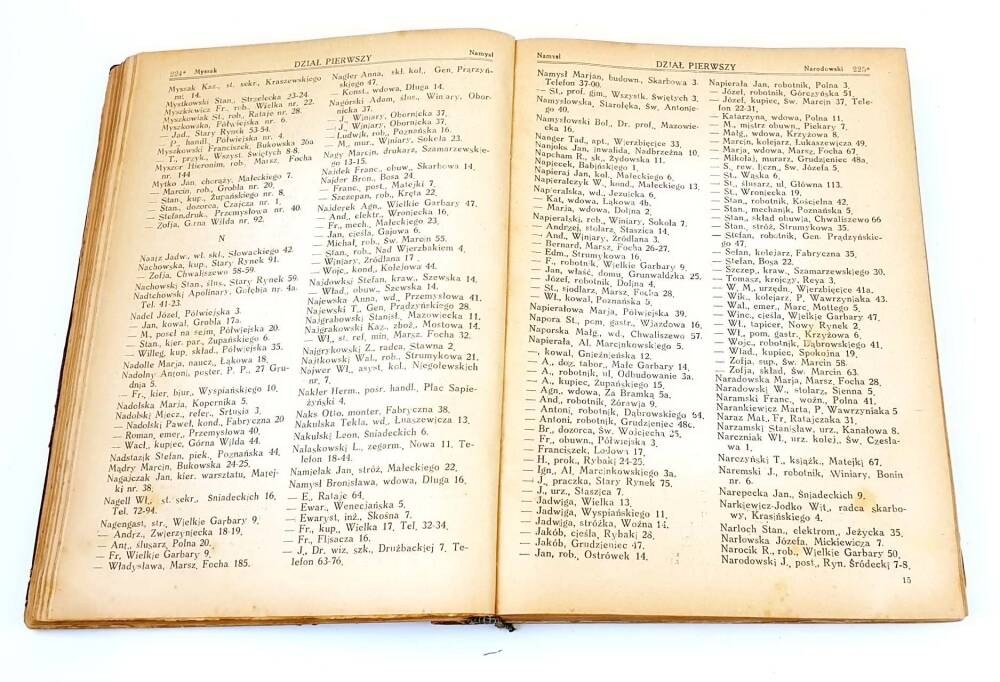 224* Myszak
DZIAŁ PIERWSZY
Namysł
Myszak Kaz., st. sekr., Kraszewskiego
nr. 14.
Mystkowski Stan., Strzelecka 23-24.
Myszkiewicz Fr., rob., Wielka nr. 22.
Myszkowiak St., rob., Rataje nr. 28.
Myszkowska, Półwiejska nr. 6.
— Jad., Stary Rynek 53-54.
— P., handl., Półwiejska nr. 4.
Myszkowski Franciszek, Bukowska 20a
— T., przyk., Wszyst. Świętych 8-8.
Myszor Hieronim, rob., Marsz. Focha
nr. 144
Mytko Jan, chorąży, Małeckiego 7.
— Marcin, rob., Grobla nr. 20.
— Stan., kup., Żupańskiego nr. 8.
— Stan., dozorca, Czajcza nr. 1.
— Stefan, druk., Przemysłowa nr. 40.
— Zofja, G.rna Wilda nr. 92.
N
Naatz Jadw., wł. skł., Słowackiego 42.
Nachowska, kup., Stary Rynek 91.
— Zofja, Chwaliszewo 58-59.
Nachowski Stan., ślus., Stary Rynek 59.
Nadtchowski Apolinary, Gołębia nr. 4a.
Tel. 41-23.
Nadel Józef, Półwiejska 3.
— Jan, kowal, Grobla 17a.
— M., poseł na sejm, Półwiejska 20.
— Stan., kier. par., Żupańskiego 6.
— Willeg, kup. skład, Półwiejska 35.
Nadolle Marja, naucz., Łąkowa 18.
Nadolny Antoni, poster. P. P., 27 Gru-
dnia 5.
— Fr., kier. bjur., Wyspiańskiego 10.
Nadolska Marja, Kopernika 5.
Nadolski Mjecz., refer., Śrtusja 3.
— Nadolski Paweł, kond., Fabryczna 20
— Roman, emer., Przemysłowa 40.
— Wacł., kupiec, Górna Wilda 44.
Nadstazik Stefan, piek., Poznańska 44.
Mądry Marcin, Bukowska 24-25.
Nagajczak Jan, kier. warsztatu, Matej-
ki nr. 38.
Nagell Wł., st. sekr., Śniadeckich 16.
Tel. 72-94.
Nagengast, str., Wjelkie Garbary 9.
— Andrz., Zwjerzynjecka 18-19.
— Ant., ślusarz, Polna 20.
— Fr., Wielkie Garbary 9.
— Władysława, Marsz. Focha 185.
Nagler Anna, skł. kol., Gen. Prądzyń-
skiego 47.
— Konst., wdowa, Długa 14.
Nagórski Adam, ślus., Winjary, Obor-
nicka 37.
— J., Winjary, Obornicka 37.
— J., Winjary, Obornicka 37.
— Ludwik, rob., Poznańska 16.
— M., mur., Winjary, Sokoła 23.
Nagy Marcin, drukarz, Szamarzewskie-
go 13-15.
Najdek Franc., obuw., Skarbowa 14.
Najder Bron., Bosa 24.
— Franc., post., Matejki 7.
— Szczepan, rob., Kręta 22.
Najderek Agn., Wielkie Garbary 47.
— And., elektr., Wronjecka 16.
— Fr., mech., Małeckiego 23.
— Jan, cjeśla, Gajowa 6.
— Michał, rob., Św. Marcin 55.
— Stan., rob., Nad Wjerzbakjem 4.
— Winjary, Źródlana 17.
— Wojc., kond., Kolejowa 44.
Najdowski Stefan, kraw., Szewska 14.
— Wład., obuw., Szewska 14.
Najewska Anna, wd., Przemysłowa 41.
Najewski T., Gen. Prądzyńskiego 28.
Najgrabowski Stanisł., Mazowjecka 11.
Najgrakowski Kaz., zboż., Mostowa 14.
— Wł., st. ref., min 32. Marsz. Focha 32.
Najgrykowski Z., radca, Sławna 2.
Najtkowski Wal., rob., Strumykowa 21.
Najwer Wł., asyst. kol., Njegolewskich
nr. 7.
Nakler Herm., pośr. handl., Plac Sapie-
żyński 4.
Naks Otto, monter, Fabryczna 38.
Nakulska Tekla, wd., Łuaszewicza 13.
Nakulski Leon, Śniadeckich 6.
Nalaskowski L., zegarm., Nowa 11. Te-
lefon 18-44.
Namielak Jan, stróż, Małeckiego 22.
Namysł Bronisława, wdowa, Długa 16.
— E., Rataje 64.
— Ewar., Wenecjańska 5.
— Ewaryst, inż., Skośna 7.
— Fr., kup., Wielka 17, Tel. 32-34.
— Fr., Flisacza 16.
— J., Dr. wiz. szk., Drużbackjej 7, Te-
lefon 63-76.
Namysł
DZIAŁ PIERWSZY
Narodowski 225*
Namysł Marjan, budown., Skarbowa 3.
Telefon 37-00.
— St., prof. gim., Wszystk. Świętych 3.
Namysłowska, Starołęka, Św. Antonie-
go 40.
Namysłowski Bol., Dr. prof., Mazowie-
cka 16.
Nanger Tad., apt., Wjerzbięcjce 33.
Nanjoks Jan, inwalida, Nadbrzeżna 10.
Napcham R., sk., Żydowska 11.
Napjecek, Babińskiego 1.
Napieraj Jan, kol., Małeckiego 6.
Napieralczyk W., kond., Małeckiego 13.
Napjeralska, wd., Jezuicka 6.
— Kat., wdowa, Łąkowa 4b.
— Marja, wdowa, Dolna 2.
Napjeralski, rob., Winiary, Sokoła 7.
— Andrzej, stolarz, Staszica 14.
— And., Winjary, Źródlana 3.
— Bernard, Marsz. Focha 26-27.
— Edm., Strumykowa 16.
— F., robotnik, Wjelkie Garbary 9.
— Jan, właść. domu, Grunwaldzka 25.
— Józef, robotnik, Dolna 4.
— St., siodlarz, Marsz. Focha 28.
— Wł., kowal, Poznańska 5.
Napierałowa Marja, Półwiejska 39.
Napora St., pom. gastr., Wjazdowa 16.
Naporska Małg., wd., Chwaliszewo 57.
Napierała, Al. Marcjnkowskiego 5.
—, kowal, Gnjeźnjeńska 12.
— A., doz. tabor., Małe Garbary 14.
— A., robotnik, ul. Odbudowanie 3a.
— A., kupiec, Żupańskiego 15.
— Agn., wdowa, Za Bramką 5a.
— And., robotnik, Żórawja 9.
— Antoni, robotnik, Dąbrowskiego 64.
— Antoni, robotnik, Grudzjeniec 48c.
— Br., dozorca, Św. Wojciecha 25.
— Fr., obuwn., Półwiejska 3.
— Franciszek, Lodowa 17.
— H., prok., Rybaki 24-25.
— Ign., Al. Marcjnkowskiego 3a.
— J., praczka, Stary Rynek 75.
— J., urz., Staszjca 7.
— Jadwiga, Wielka 13.
— Jadwiga, Wyspiańskiego 11.
— Jadwiga, stróżka, Woźna 14.
— Jakób, cjeśla, Rybakj 28.
— Jakób, Grudzjeniec 47.
— Jan, rob., Ostrówek 14.
Napierała Jan, robotnik, Polna 3.
— Józef, robotnik, Górczyńska 51.
— Józef, kupiec, Św. Marcjn 37, Tele-
fon 22-31.
— Katarzyna, wdowa, Polna 11.
— M., mistrz obuwn., Piekary 7.
— Małg., wdowa, Krzyżowa 8.
— Marcjn, kolejarz, Łukaszewicza 49.
— Marja, wdowa, Marsz. Focha 67.
— Mikołaj, murarz, Grudzjeniec 48a.
— S., rew. liczn., Św. Józefa 5.
— St., Wąska 6.
— St., ślusarz, ul. Główna 113.
— St., Wronjecka 19.
— Stan., robotnik, Kościelna 42.
— Stan., mechanik, Poznańska 5.
— Stan., skład obuwja, Chwaliszewo 66
— Stan., stróż, Strumykowa 35.
— Stefan, robotnik, Gen. Prądzyńskie-
go 47.
— Sefan, kolejarz, Fabryczna 35.
— Stefan, Bosa 22.
— Szczep., kraw., Szamarzewskiego 30.
— Tomasz, krojczy, Reya 3.
— W. M., urzędn., Wierzbięcjce 41a.
— Wik., kolejarz, P. Wawrzyniaka 43
— Wal., emer., Marc. Mottego 5.
— Winc., cjeśla, Wjelkie Garbary 47.
— Wł., tapicer, Nowy Rynek 2.
— Wł., pom. gastr., Krzyżowa 6.
— Wojc., robotnik, Dąbrowskjego 41.
— Wład., kupiec, Spokojna 19.
— Zofja, sup., Św. Marcin 58.
— Zofja, skład, Św. Marcin 63.
Naradowska Marja, Marsz. Focha 28.
Naradowski W., stolarz, Sienna 5.
Naramski Franc., woźn., Polna 41.
Narankiewicz Marta, P. Wawrzyniaka 5
Naraz Mat., Fr. Ratajczaka 31.
Narzamski Stanisław, urz., Kanałowa 8.
Narczniak Wł., urz. kolej., Św. Czesła-
wa 1.
Narczyński T., książk., Matejki 67.
Naremski J., robotnik, Winiary, Bonin
nr. 6.
Narepecka Jan., Śnjadeckich 9.
Narkjewicz-Jodko Wjt., radca skarbo-
wy, Krasjńskiego 4.
Narloch Stan., elektrom., Jeżycka 35.
Narłowska Józefa, Mickiewicza 7.
Narocik R., rob., Wjelkie Garbary 50.
Narodowski J., post., Ryn. Śródecki 7-8.
15